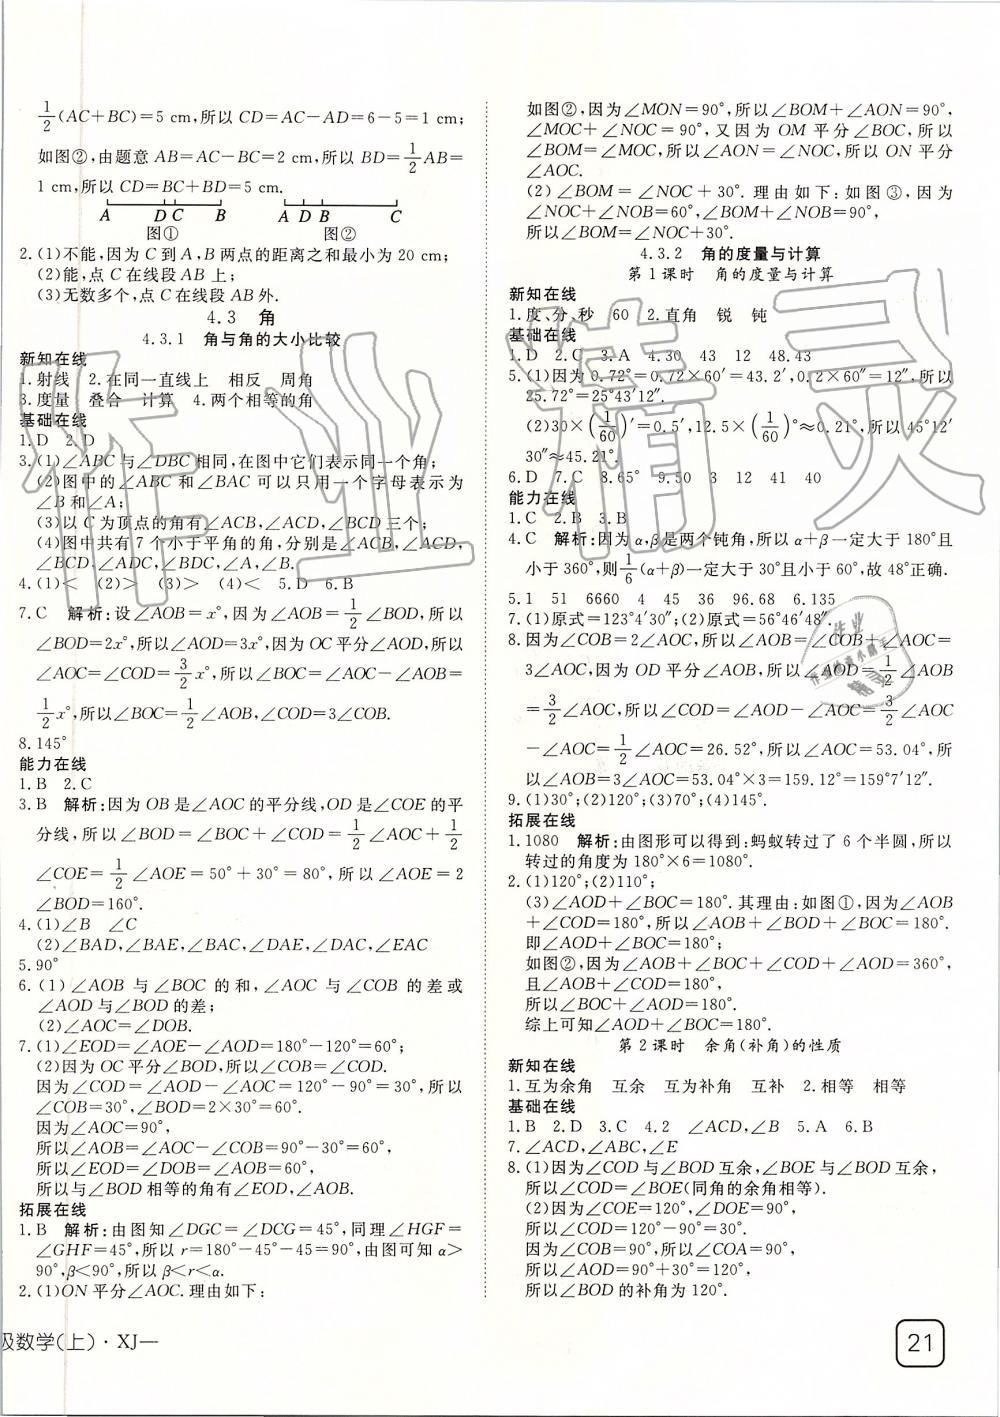 1/2(AC+BC)=5 cm,所以 CD=AC-AD=6-5=1 cm;
如图②,由题意 AB=AC-BC=2 cm,所以 BD=1/2AB=
1 cm,所以 CD=BC+BD=5 cm.
A D C B A D B C
图① 图②
2.(1)不能,因为 C 到 A,B 两点的距离之和最小为 20 cm;
(2)能,点 C 在线段 AB 上;
(3)无数多个,点 C 在线段 AB 外.
4.3 角
4.3.1 角与角的大小比较
新知在线
1.射线 2.在同一直线上 相反 周角
3.度量 叠合 计算 4.两个相等的角
基础在线
1.D 2.D
3.(1)∠ABC 与∠DBC 相同,在图中它们表示同一个角;
(2)图中的∠ABC 和∠BAC 可以只用一个字母表示为
∠B 和∠A;
(3)以 C 为顶点的角有∠ACB,∠ACD,∠BCD 三个;
(4)图中共有 7 个小于平角的角,分别是∠ACB,∠ACD,
∠BCD,∠ADC,∠BDC,∠A,∠B.
4.(1)< (2)> (3)> (4)< 5.D 6.B
7.C 解析:设∠AOB=x°,因为∠AOB=1/2∠BOD,所以
∠BOD=2x°,所以∠AOD=3x°,因为 OC 平分∠AOD,所以
∠AOC=∠COD=3/2x°,所以∠BOC=∠AOC-∠AOB=
1/2x°,所以∠BOC=1/2∠AOB,∠COD=3∠COB.
8.145°
能力在线
1.B 2.C
3.B 解析:因为 OB 是∠AOC 的平分线,OD 是∠COE 的平
分线,所以∠BOD=∠BOC+∠COD=1/2∠AOC+1/2
∠COE=1/2∠AOE=50°+30°=80°,所以∠AOE=2
∠BOD=160°.
4.(1)∠B ∠C
(2)∠BAD,∠BAE,∠BAC,∠DAE,∠DAC,∠EAC
5.90°
6.(1)∠AOB 与∠BOC 的和,∠AOC 与∠COB 的差或
∠AOD 与∠BOD 的差;
(2)∠AOC=∠DOB.
7.(1)∠EOD=∠AOE-∠AOD=180°-120°=60°;
(2)因为 OC 平分∠BOD,所以∠COB=∠COD.
因为∠COD=∠AOD-∠AOC=120°-90°=30°,所以
∠COB=30°,∠BOD=2×30°=60°.
因为∠AOC=90°,
所以∠AOB=∠AOC-∠COB=90°-30°=60°,
所以∠EOD=∠DOB=∠AOB=60°,
所以与∠BOD 相等的角有∠EOD,∠AOB.
拓展在线
1.B 解析:由图知∠DGC=∠DCG=45°,同理∠HGF=
∠GHF=45°,所以 r=180°-45°-45=90°,由图可知 α>
90°,β<90°,所以 β<r<α.
2.(1)ON 平分∠AOC.理由如下:
级数学(上)·XJ—
如图②,因为∠MON=90°,所以∠BOM+∠AON=90°,
∠MOC+∠NOC=90°,又因为 OM 平分∠BOC,所以
∠BOM=∠MOC,所以∠AON=∠NOC,所以 ON 平分
∠AOC.
(2)∠BOM=∠NOC+30°.理由如下:如图③,因为
∠NOC+∠NOB=60°,∠BOM+∠NOB=90°,
所以∠BOM=∠NOC+30°.
4.3.2 角的度量与计算
第 1 课时 角的度量与计算
新知在线
1.度、分、秒 60 2.直角 锐 钝
基础在线
1.D 2.C 3.A 4.30 43 12 48.43
5.(1)因为 0.72°=0.72×60′=43.2′,0.2×60″=12″,所以
25.72°=25°43′12″.
(2)30×(1/60)′=0.5′,12.5×(1/60)°≈0.21°,所以 45°12′
30″≈45.21°.
6.D 7.C 8.65° 9.50 3 12 41 40
能力在线
1.C 2.B 3.B
4.C 解析:因为 α,β 是两个钝角,所以 α+β 一定大于 180°且
小于 360°,则1/6(α+β)一定大于 30°且小于 60°,故 48°正确.
5.1 51 6660 4 45 36 96.68 6.135
7.(1)原式=123°4′30″;(2)原式=56°46′48″.
8.因为∠COB=2∠AOC,所以∠AOB=∠COB+∠AOC=
3∠AOC,因为 OD 平分∠AOB,所以∠AOD=1/2∠AOB
=3/2∠AOC,所以∠COD=∠AOD-∠AOC=3/2∠AOC
-∠AOC=1/2∠AOC=26.52°,所以∠AOC=53.04°,所
以∠AOB=3∠AOC=53.04°×3=159.12°=159°7′12″.
9.(1)30°;(2)120°;(3)70°;(4)145°.
拓展在线
1.1080 解析:由图形可以得到:蚂蚁转过了 6 个半圆,所以
转过的角度为 180°×6=1080°.
2.(1)120°;(2)110°;
(3)∠AOD+∠BOC=180°.其理由:如图①,因为∠AOB
+∠COD=180°,所以∠AOB+∠BOD+∠BOC=180°.
即∠AOD+∠BOC=180°;
如图②,因为∠AOB+∠BOC+∠COD+∠AOD=360°,
且∠AOB+∠COD=180°,
所以∠BOC+∠AOD=180°.
综上可知∠AOD+∠BOC=180°.
第 2 课时 余角(补角)的性质
新知在线
1.互为余角 互余 互为补角 互补 2.相等 相等
基础在线
1.B 2.D 3.C 4.2 ∠ACD,∠B 5.A 6.B
7.∠ACD,∠ABC,∠E
8.(1)因为∠COD 与∠BOD 互余,∠BOE 与∠BOD 互余,
所以∠COD=∠BOE(同角的余角相等).
(2)因为∠COE=120°,∠DOE=90°,
所以∠COD=120°-90°=30°.
因为∠COB=90°,所以∠COA=90°,
所以∠AOD=90°+30°=120°,
所以∠BOD 的补角为 120°.
21
作业精灵